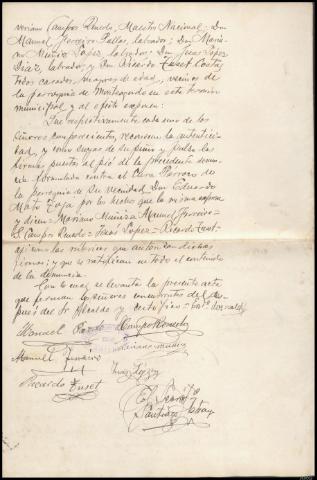 Campos Romero, Maestro Nacional; Don
Manuel Ferreiro Pallas, labrador; Don Maria-
no Muñiz Lopez, labrador; Don Jesus Lopez
Diaz, labrador y Don Ricardo Tuset Costa,
todos casados, mayores de edad, vecinos de
la parroquia de en este término
municipal y al efecto exponen:
Que respectivamente cada uno de los
señores comparecientes, reconocen la autentici-
dad, y como suyas de su puño y pulso las
firmas puestas al pié de la precedente denun-
cia formulada contra el Cura Parroco de
la parroquia de su vecindad Don Eduardo
Mato por los hechos que la misma expresa
y dicen: Mariano Muñiz= Manuel Ferreiro=
E. Campos Romero= Jesus Lopez= Ricardo Tuset=
asi como las rubricas que autorizan dichas
firmas; y que se ratifican en todo el contenido
de la denuncia.
Con lo cual se levanta la presente acta
que firman los señores concurrentes des-
pues del Sr Alcalde y certifico=
Manuel Pardo Campo Romero
Manuel Ferreiro Mariano Muñiz
Jesus Lopez
Ricardo Tuset
El Secretario
Santiago